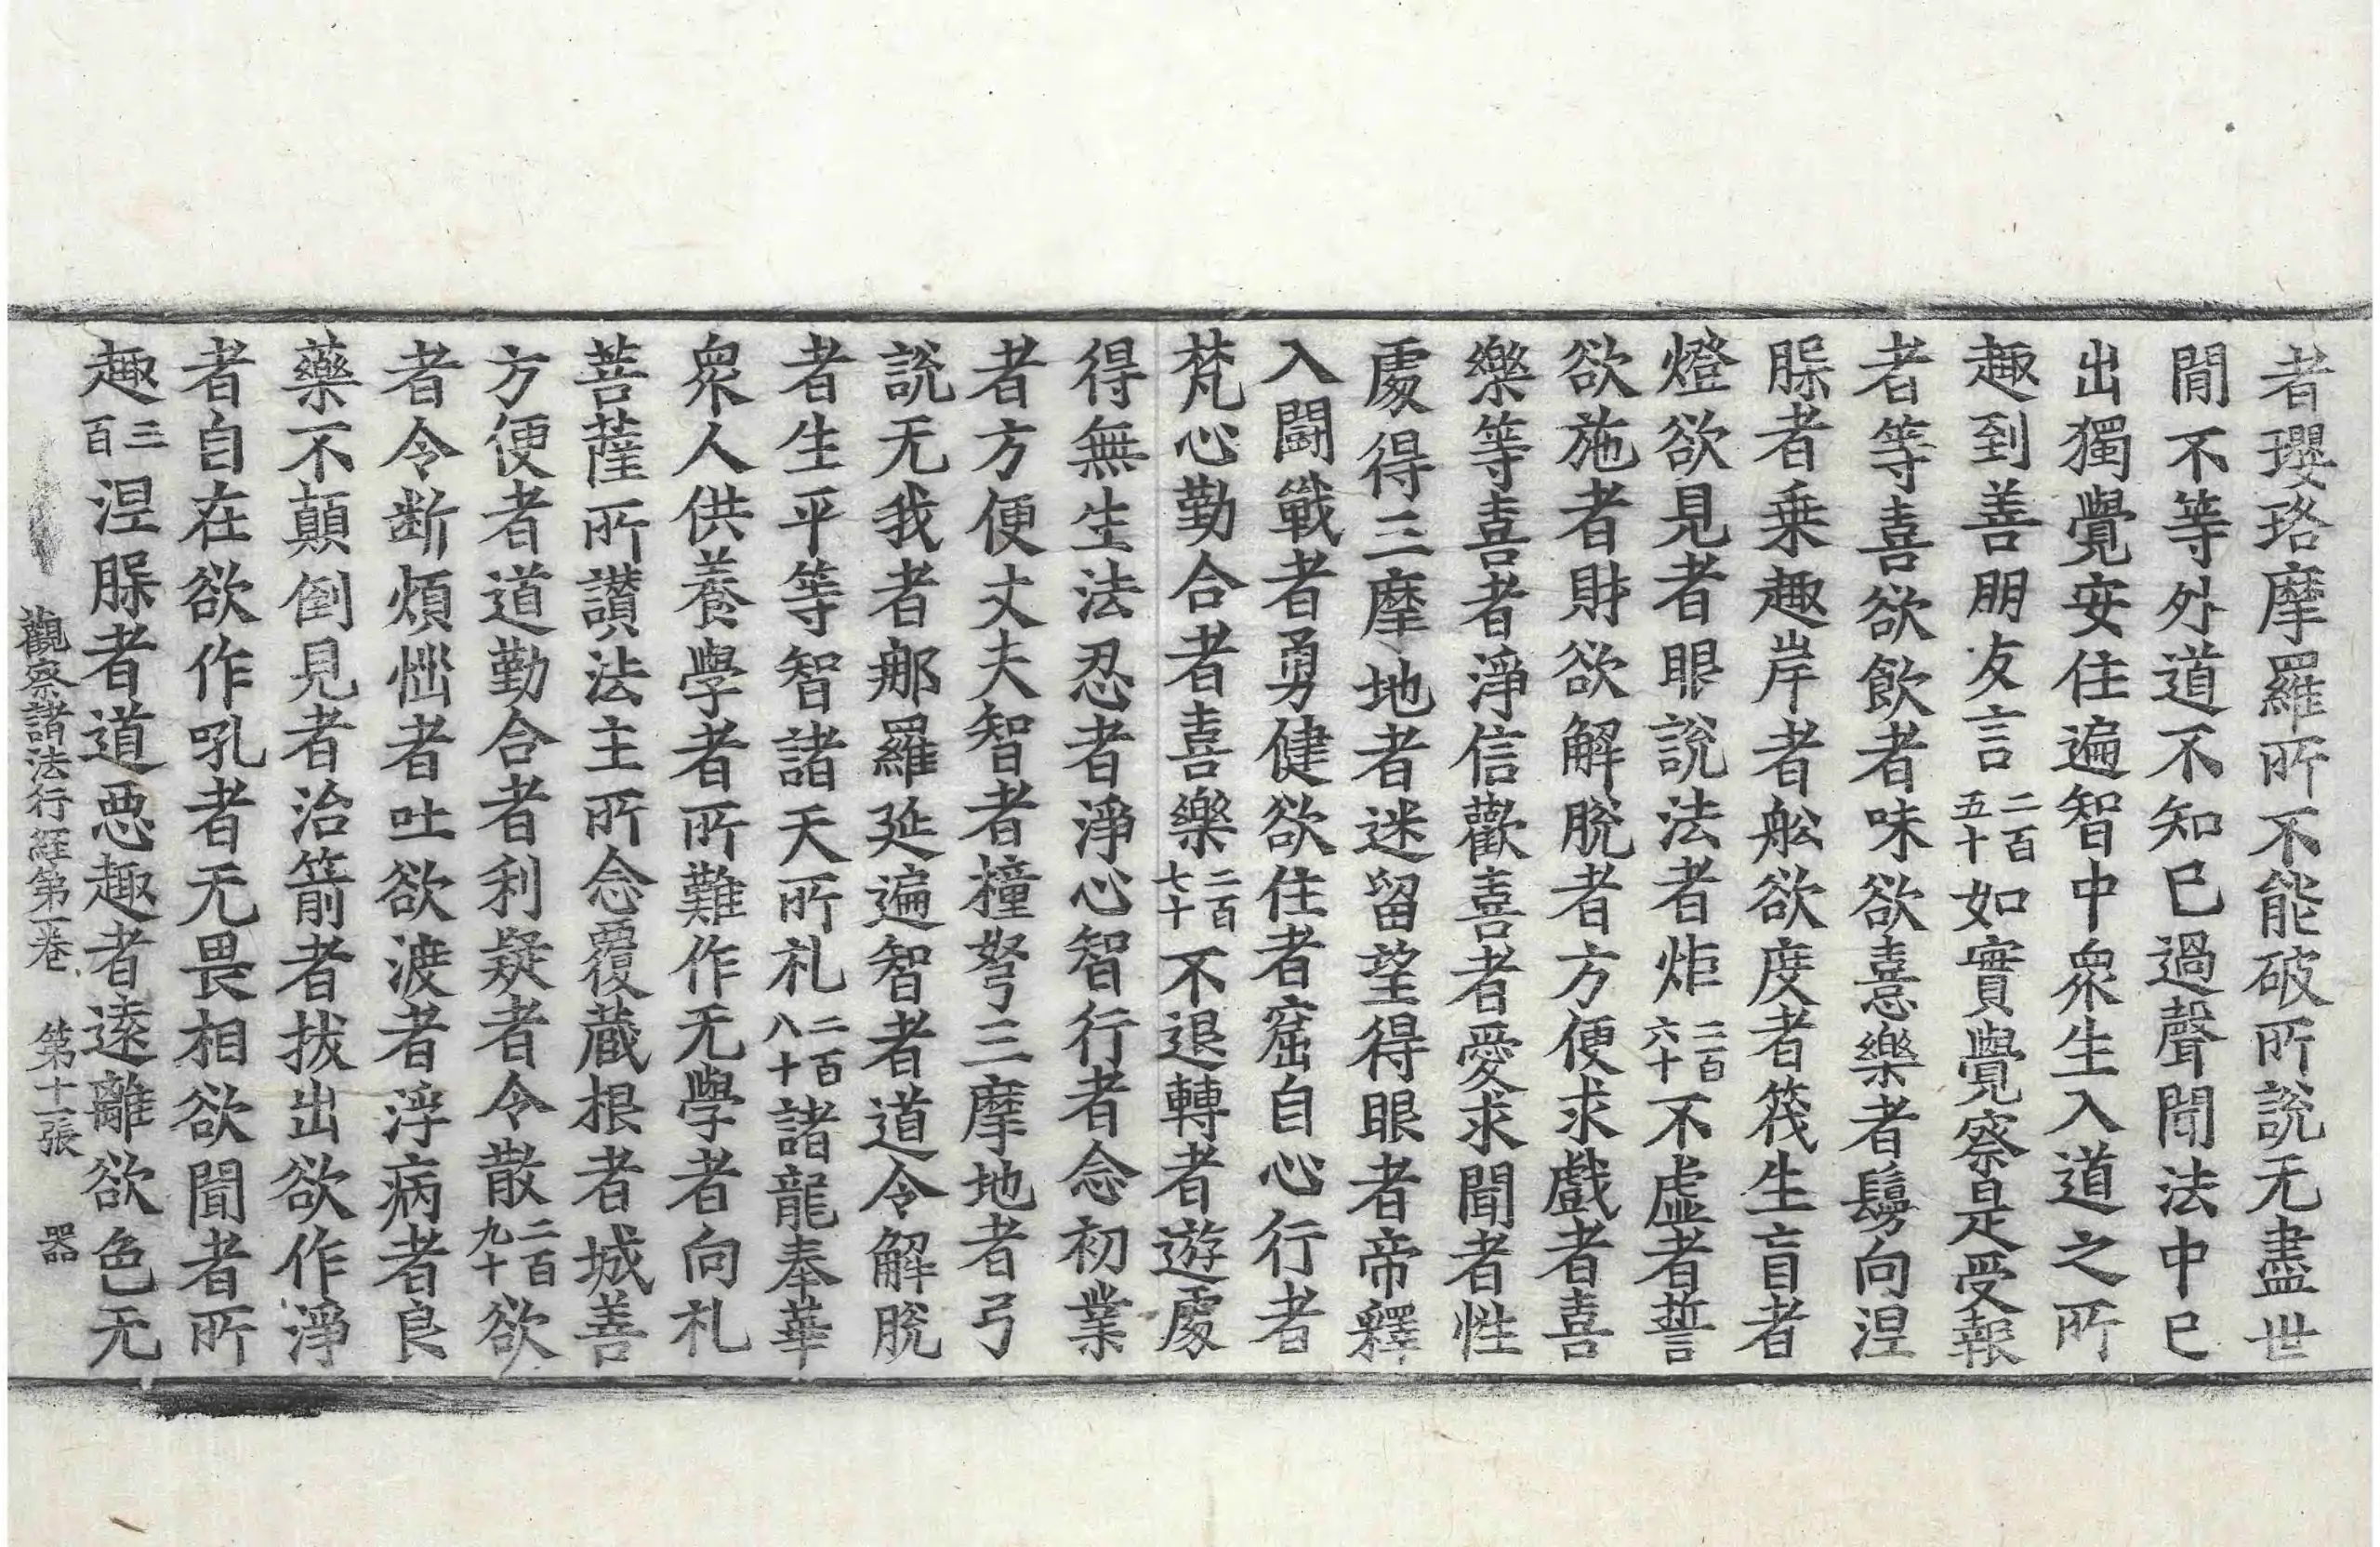 者瓔珞摩羅所不能破所說无盡世
閒不等外道不知已過聲聞法中已
出獨覺安住遍智中衆生入道之所
趣到善朋友言二百五十如實覺察是受報
者等喜欲飲者味欲憙樂者鬘向涅
𦢊者乗趣岸者舩欲度者筏生盲者
燈欲見者眼說法者炬二百六十不虛者誓
欲施者財欲解脫者方便求戲者喜
樂等喜者淨信歡喜者愛求聞者性
處得三摩地者迷留望得眼者帝釋
入闘戰者勇健欲住者窟自心行者
梵心勤合者喜樂二百七十不退轉者遊處
得無生法忍者淨心智行者念初業
者方便丈夫智者橦弩三摩地者弓
說无我者那羅延遍智者道令解脫
者生平等智諸天所礼二百八十諸龍奉華
衆人供養學者所難作无學者向礼
菩薩所讃法主所念覆蔵根者城善
方便者道勤合者利疑者令散二百九十欲
者令断煩惱者吐欲渡者浮病者良
藥不顛倒見者治箭者拔出欲作淨
者自在欲作吼者无畏相欲聞者所
趣三百涅𦢊者道惡趣者遠離欲色无
觀察諸法行經第一卷 第十一張 器